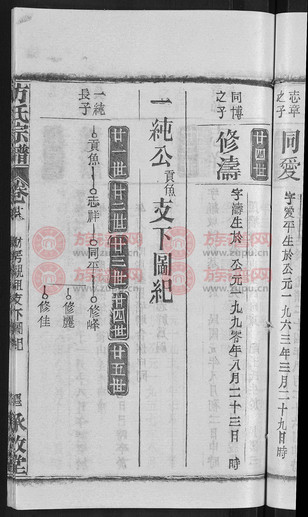 志章之子
同愛
字愛平生於公元一九六三年二月二十九日 時
廿四世
同博之子
修濤
字濤生於公元一九九零年八月二十三日 時
一純公貢魚支下圖紀
廿一世 廿二世 廿三世 廿四世 廿五世
一純長子
貢魚 志祥 同平 修峰
修麗
修佳
方氏宗譜
卷
支下圖紀
承啟堂